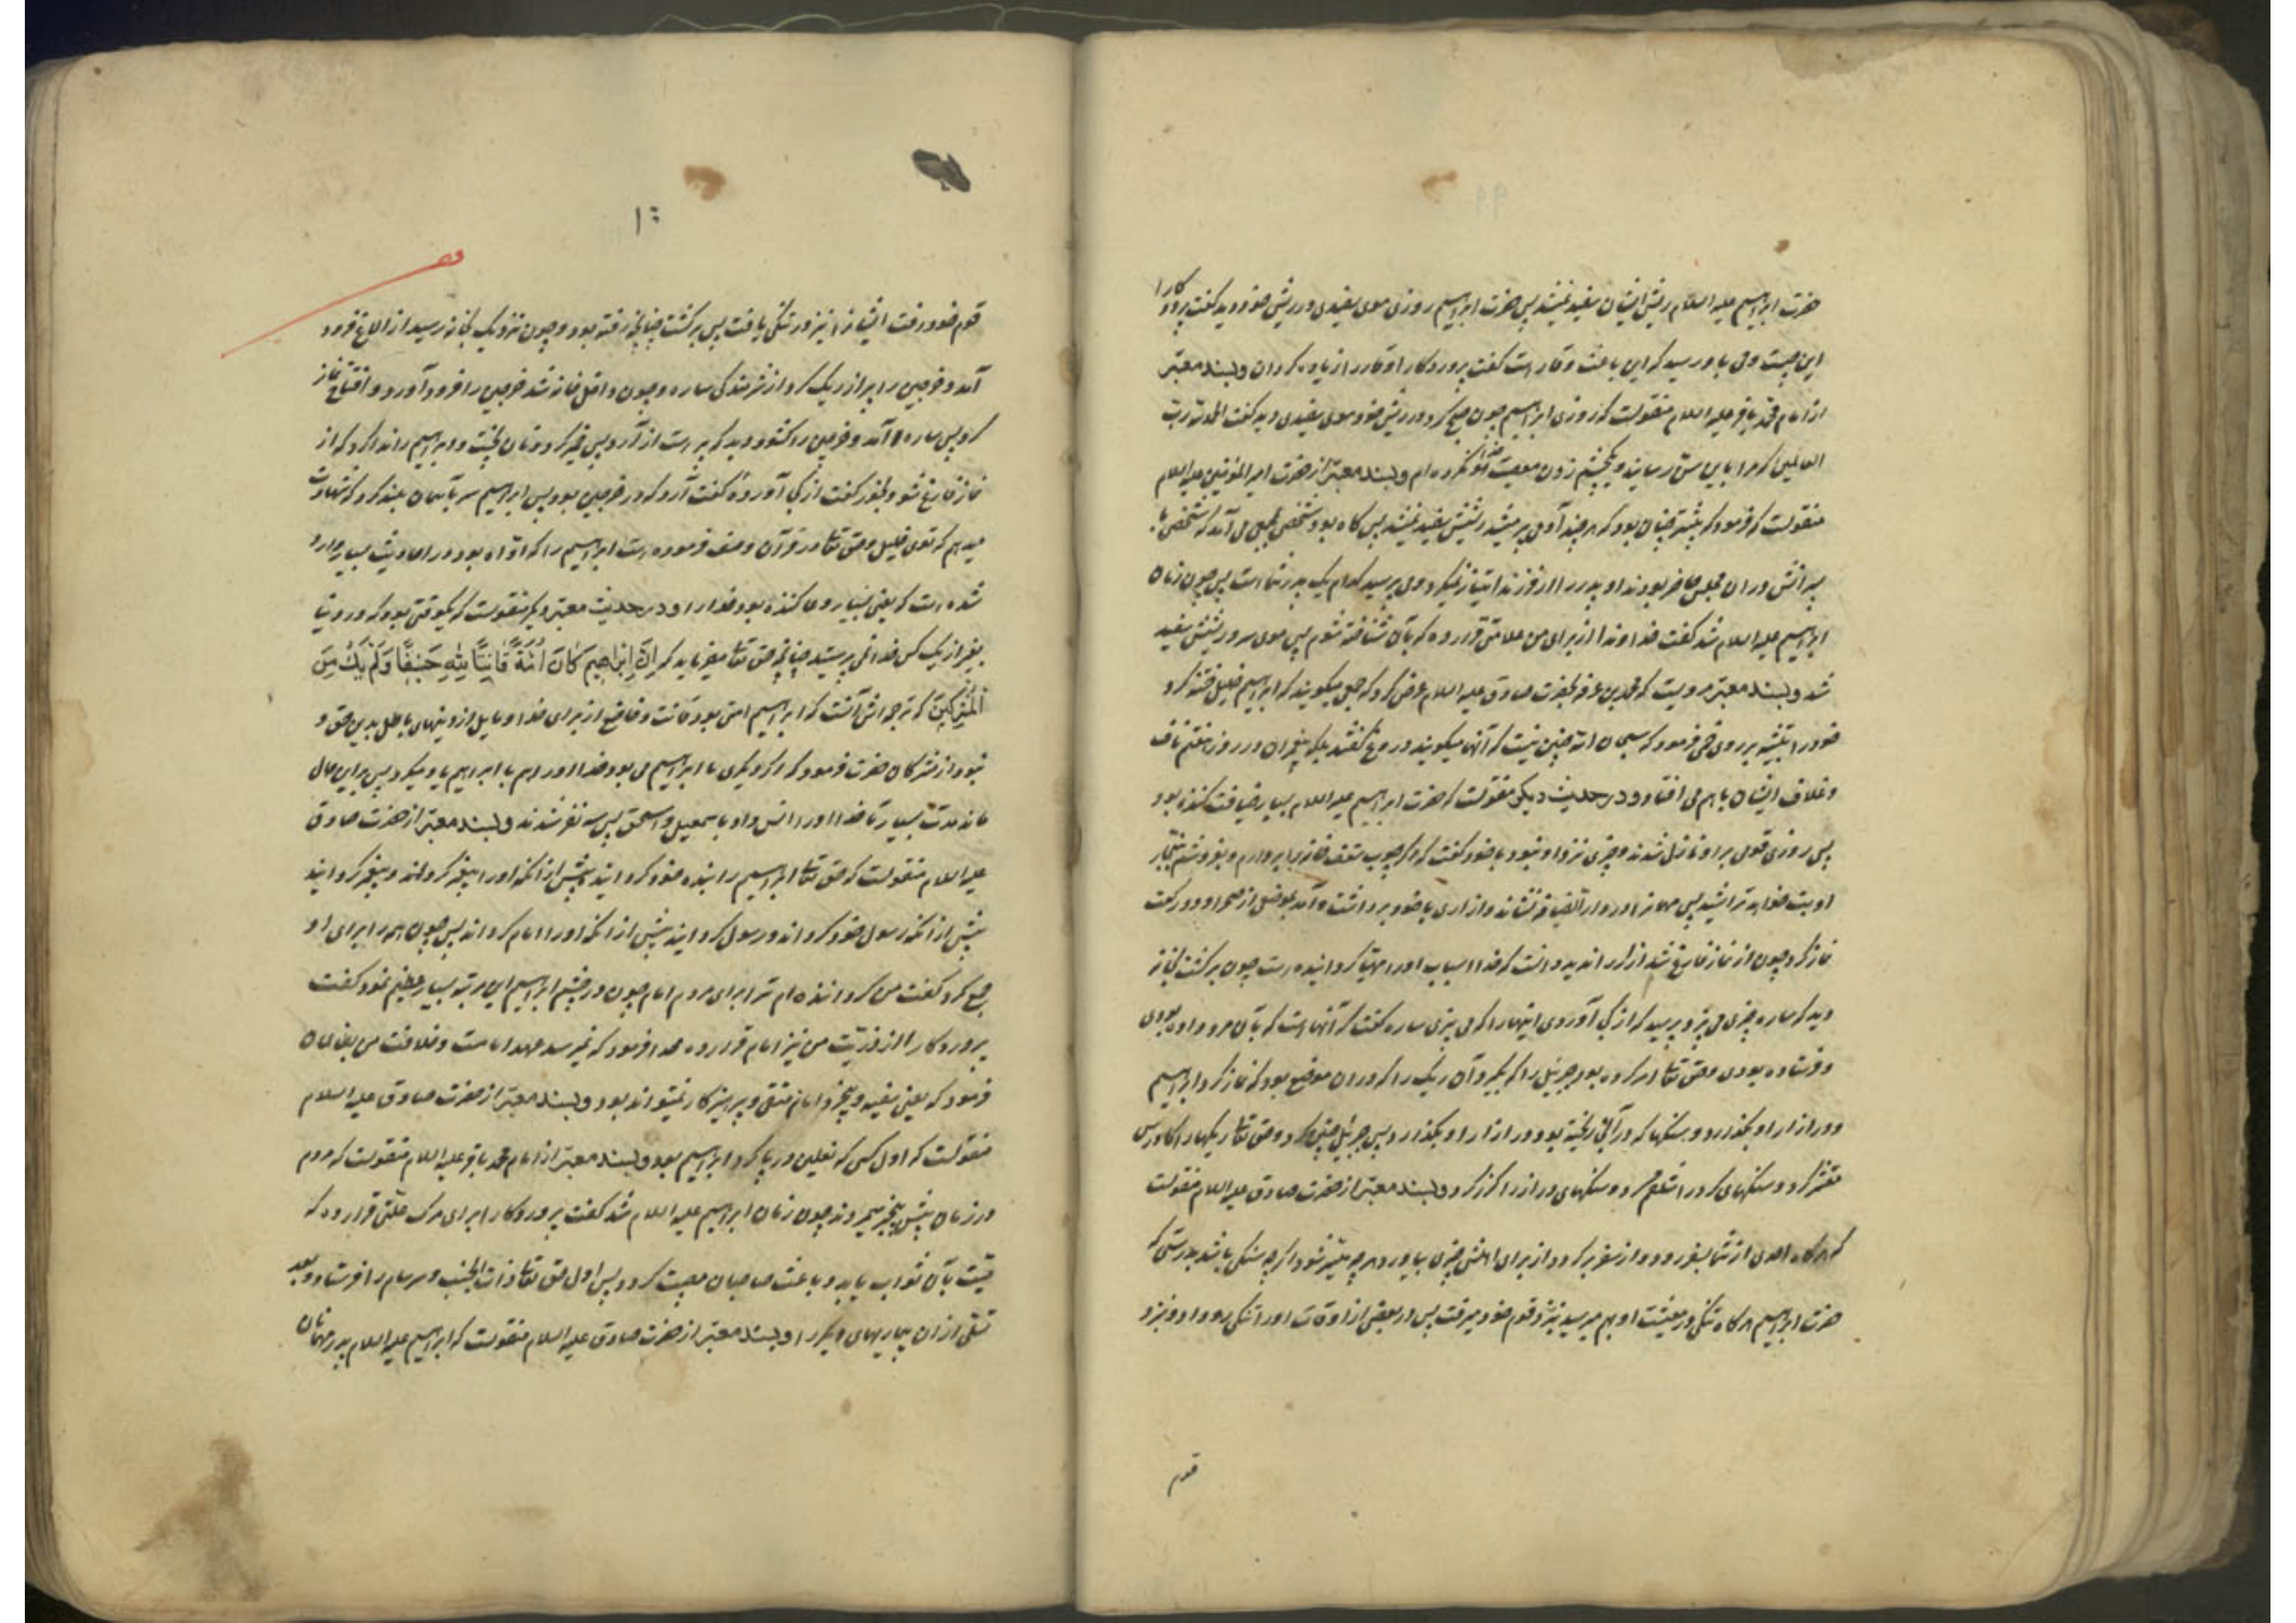 حضرت ابراهیم علیه السلام ریش ایشان سفید نمیشد پس حضرت ابراهیم روزی موی سفیدی در ریش خود دید گفت پروردکارا
این چیست وحی باو رسید که این باعث وقار است گفت پروردکارا وقار را زیاده کردان و بسند معتبر
از امام محمد باقر علیه السلام منقولست که روزی ابراهیم چون صبح کرد در ریش خود موی سفیدی دید گفت الحمد لله رب
العالمین که مرا باین سن رسانید و یکچشم زدن معصیت خدا نکرده ام و بسند معتبر از حضرت امیر المؤمنین علیه السلام
منقولست که فرمود که پیشتر چنان بود که هر چند آدمی پیر میشد ریشش سفید نمیشد پس کاه بود شخصی بمجلسی می آمد که شخصی با
پسرانش در آن مجلس حاضر بودند او پدر را از فرزند امتیاز نمیکرد و می پرسید کدام یک پدر شماست پس چون زمان
ابراهیم علیه السلام شد گفت خداوندا از برای من علامتی قرار ده که بآن شناخته شوم پس موی سر و ریشش سفید
شد و بسند معتبر مرویست که محمد بن عرفه بحضرت صادق علیه السلام عرض کرد که جمعی میکویند که ابراهیم خلیل ختنه کرد
خود را بتیشه بر روی خمی فرمود که سبحان الله چنین نیست که آنها میکویند دروغ گفتند بلکه پیغمبران در روز هفتم ناف
و غلاف ایشان باهم می افتاد و در حدیث دیکر منقولست که حضرت ابراهیم علیه السلام بسیار ضیافت کننده بود
پس روزی قومی بر او نازل شدند و چیزی نزد او نبود با خود گفت که اگر چوب سقف خانه را بر دارم و بفروشم بنجار
او بت خواهد تراشید پس مهمانانرا در دار الضیافه نشاند و ازاری با خود برداشت و آمد بموضعی از صحرا و دو رکعت
نماز کرد چون از نماز فارغ شد ازار را ندید دانست که خدا اسباب او را مهیا کردانیده است چون برکشت بخانه
دید که ساره چیزی می پزد پرسید که از کجا آوردی اینها را که می پزی ساره گفت که آنها است که بآن مرد داده بودی
و فرستاده بودی و حق تعالی امر کرده بود جبرئیل را که بگیرد آن ریک را که در آن موضع بود که نماز کرد ابراهیم
و در ازار او بکذارد و سنکها که در آنجا ریخته بود در ازار او بکذارد پس جبرئیل چنین کرد و حق تعالی ریکها را کاورس
مقشر کرد و سنکهای کرد را شلغم کرد و سنکهای دراز را کزر کرد و بسند معتبر از حضرت صادق علیه السلام منقولست
که هرکاه احدی از شما بسفر رود و از سفر برکردد از برای اهلش چیزی بیاورد هر چه میسر شود اکر چه سنکی باشد بدرستی که
حضرت ابراهیم هرکاه تنکی در معیشت او بهم میرسید بنزد قوم خود میرفت پس در بعضی از اوقات او را تنکی رو داد و نزد
قوم
قوم خود رفت ایشانرا نیز در تنکی یافت پس برکشت چنانچه رفته بود و چون نزدیک بخانه رسید از الاغ فرود
آمد و خرجین را پر از ریک کرد از شرمندکی ساره و چون داخل خانه شد خرجین را فرود آورد و افتتاح نماز
کرد پس ساره آمد و خرجین را کشود دید که پر است از آرد پس خمیر کرد و نان پخت و ابراهیم را ندا کرد که از
نماز فارغ شو و بخور گفت از کجا آورده گفت از آرد که در خرجین بود پس ابراهیم سر بآسمان بلند کرد که شهادت
میدهم که توئی خلیل و حق تعالی در قرآن وصف فرموده است ابراهیم را که اواه بود در احادیث بسیار وارد
شده است که یعنی بسیار دعا کننده بود خدا را و در حدیث معتبر دیکر منقولست که یکوقتی بود که در دنیا
بغیر از یک کس خدا نمی پرستید چنانچه حق تعالی میفرماید که اِنَّ اِبْرَاهِیمَ کَانَ اُمَّةً قَانِتًا لِلّٰهِ حَنِیفًا وَلَمْ یَکُ مِنَ
الْمُشْرِکِینَ که ترجمه اش آنست که ابراهیم امتی بود قانت و خاضع از برای خدا و مایل از دینهای باطل بدین حق و
نبود از مشرکان حضرت فرمود که اکر دیکری با ابراهیم می بود خدا او را هم با ابراهیم یاد میکرد پس براین حال
ماند مدت بسیار تا خدا او را انس داد باسمعیل و اسحق پس سه نفر شدند و بسند معتبر از حضرت صادق
علیه السلام منقولست که حق تعالی ابراهیم را بنده خود کردانید پیش از آنکه او را پیغمبر کرداند و پیغمبر کردانید
پیش از آنکه رسول خود کرداند و رسول کردانید پیش از آنکه او را امام کرداند پس چون همه را برای او
جمع کرد گفت من کردانیده ام ترا برای مردم امام چون در چشم ابراهیم این مرتبه بسیار عظیم نمود گفت
پروردکارا از ذریت من نیز امام قرار ده خدا فرمود که نمیرسد عهد امامت و خلافت من بظالمان
فرمود که یعنی سفیه و بیخرد امام متقی و پرهیزکار نمیتواند بود و بسند معتبر از حضرت صادق علیه السلام
منقولست که اول کسی که نعلین در پا کرد ابراهیم بود و بسند معتبر از امام محمد باقر علیه السلام منقولست که مردم
در زمان پیش بیخبر میمردند چون زمان ابراهیم علیه السلام شد گفت پروردکارا برای مرک علتی قرار ده که
میت بآن ثواب یابد و باعث صاحبان مصیبت کردد پس اول حق تعالی ذات الجنب و سرسام را فرستاد و بعد
از آن بیماریهای دیکر را و بسند معتبر از حضرت صادق علیه السلام منقولست که ابراهیم علیه السلام پدر مهمانان